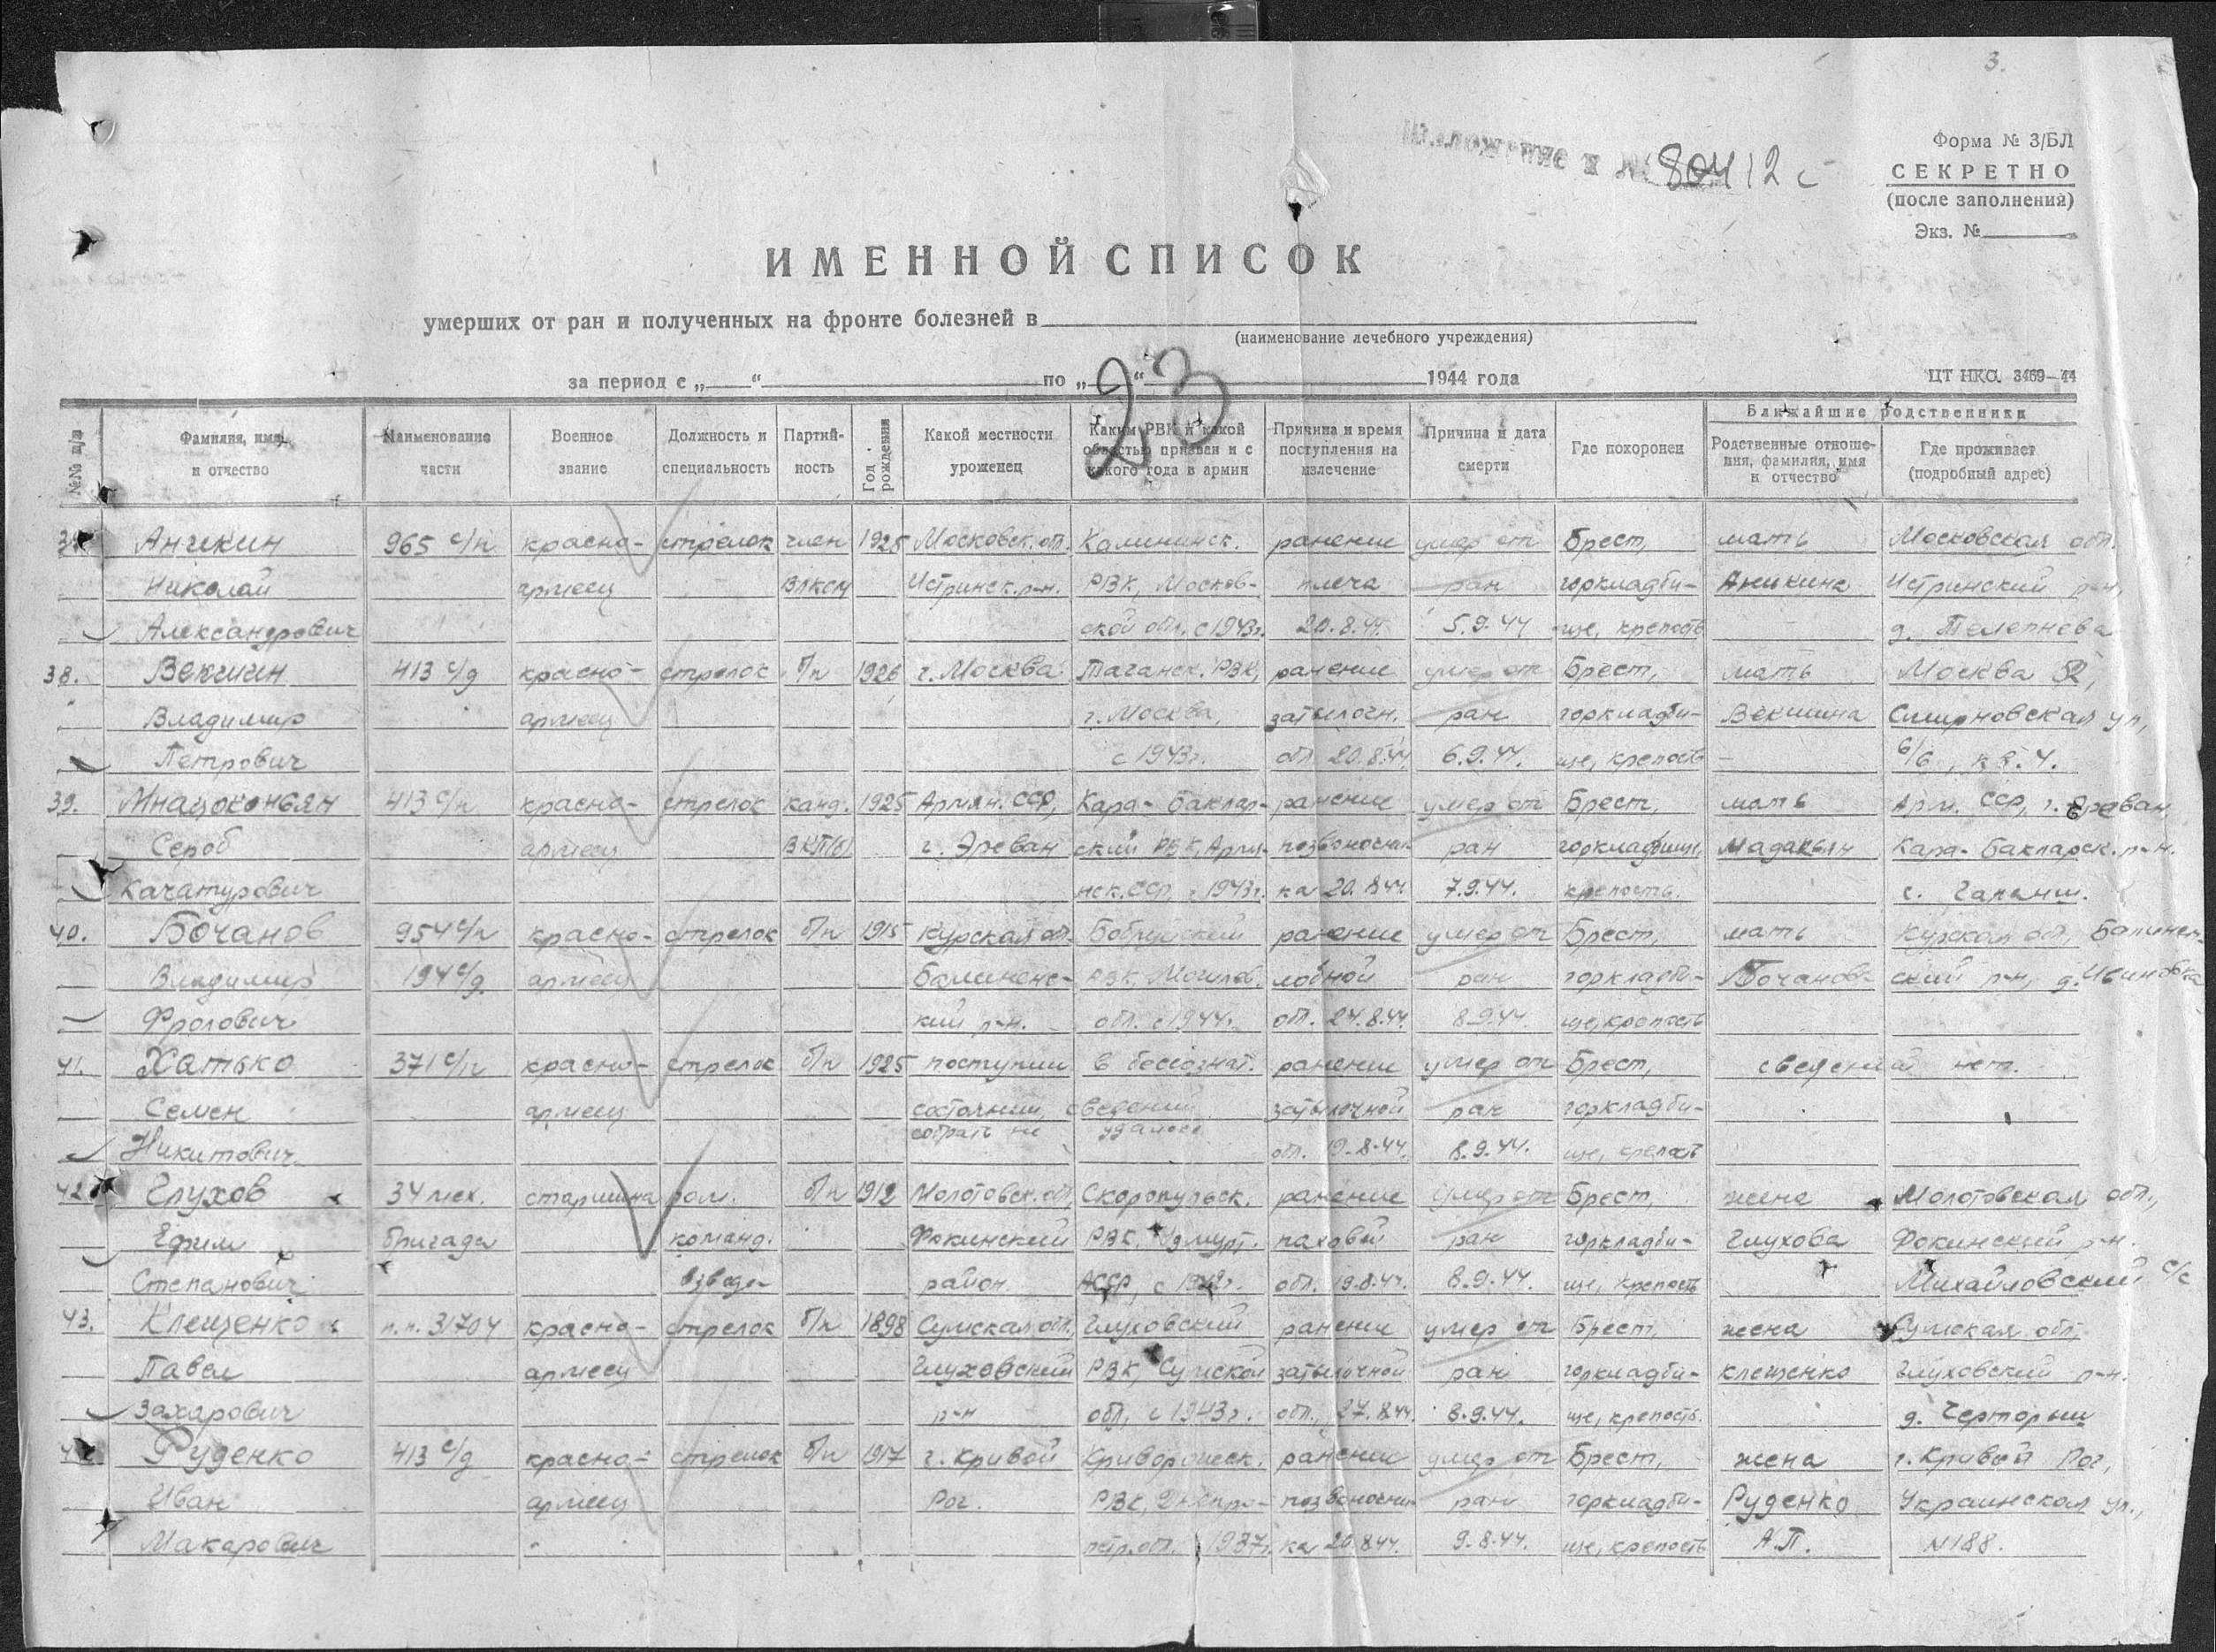 3.
Приложение к № 80412 с
Форма № 3/БЛ
СЕКРЕТНО
(после заполнения)
Экз. №
ИМЕННОЙ СПИСОК
умерших от ран и полученных на фронте болезней в
(наименование лечебного учреждения)
за период с „ “ по „ “ 1944 года
23
ЦТ НКО. 3469—44
№№ п/п Фамилия, имя и отчество Наименование части Военное звание Должность и специальность Партийность Год рождения Какой местности уроженец Каким РВК и какой областью призван и с какого года в армии Причина и время поступления на излечение Причина и дата смерти Где похоронен Ближайшие родственники Родственные отношения, фамилия, имя и отчество Где проживает (подробный адрес)
Аникин 965 с/п красно- стрелок член 1925 Московск. обл. Калининск. ранение умер от Брест, мать Московская обл.
Николай армеец ВЛКСМ Истринск. р-н. РВК, Москов- плеча ран горкладби- Аникина Истринский р-н,
Александрович ской обл. с 1943г. 20.8.44. 5.9.44 ще, крепость д. Телепнева
38. Векшин 413 с/д красно- стрелок б/п 1926 г. Москва Таганск. РВК, ранение умер от Брест, мать Москва 52,
Владимир армеец г. Москва, затылочн. ран горкладби- Векшина Смирновская ул,
Петрович с 1943г. обл. 20.8.44 6.9.44. ще, крепость 6/6, кв. 4.
39. Мнацоконьян 413 с/п красно- стрелок канд. 1925 Армян. ССР, Кара- Баклар- ранение умер от Брест, мать Арм. ССР, г. Ереван,
Сероб армеец ВКП(б) г. Эреван ский РВК, Армя- позвоночни- ран горкладбище, Мадакьян Кара- Бакларск. р-н.
Качатурович нск. ССР, с 1943г. ка 20.8.44 7.9.44. крепость.
40. Бочанов 954 с/п красно- стрелок б/п 1915 Курская обл. Бобруйский ранение умер от Брест, мать Курская обл,
Владимир 194 с/д армеец РВК, Могилев. лобной ран горкладби- Бочанов- ский р-н,
Фролович кий р-н. обл. с 1944г. обл. 24.8.44. 8.9.44. ще, крепость
41. Хатько 371 с/п красно- стрелок б/п 1925 поступил в бессознат. ранение умер от Брест, сведений нет.
Семен армеец состоянии, сведений затылочной ран горкладби-
собрать не удалось
Никитович обл. 19.8.44. 8.9.44. ще, крепость
42. Глухов 34 мех. старшина пом. б/п 1912 Молотовск. обл, Скоропульск. ранение умер от Брест, жена Молотовская обл.,
Ефим бригада команд. Фокинский РВК, Удмурт. паховой ран горкладби- Глухова Фокинский р-н.
Степанович взвода район АССР, с обл. 19.8.44. 8.9.44. ще, крепость Михайловский с/с
43. Клещенко п.п. 31704 красно- стрелок б/п 1898 Сумская обл. Глуховский ранение умер от Брест, жена Сумская обл,
Павел армеец Глуховский РВК, Сумской затылочной ран горкладби- Клещенко Глуховский р-н.
Захарович р-н обл, с 1943г. обл., 27.8.44 8.9.44. ще, крепость. д. Черторыи
Руденко 413 с/д красно- стрелок б/п 1917 г. Кривой Криворожск. ранение умер от Брест, жена г. Кривой Рог,
Иван армеец Рог. РВК, Днепро- позвоночни- ран горкладби- Руденко Украинская ул.,
Макарович петр. обл. 1937г. ка 20.8.44. 9.8.44. ще, крепость А.П. №188.